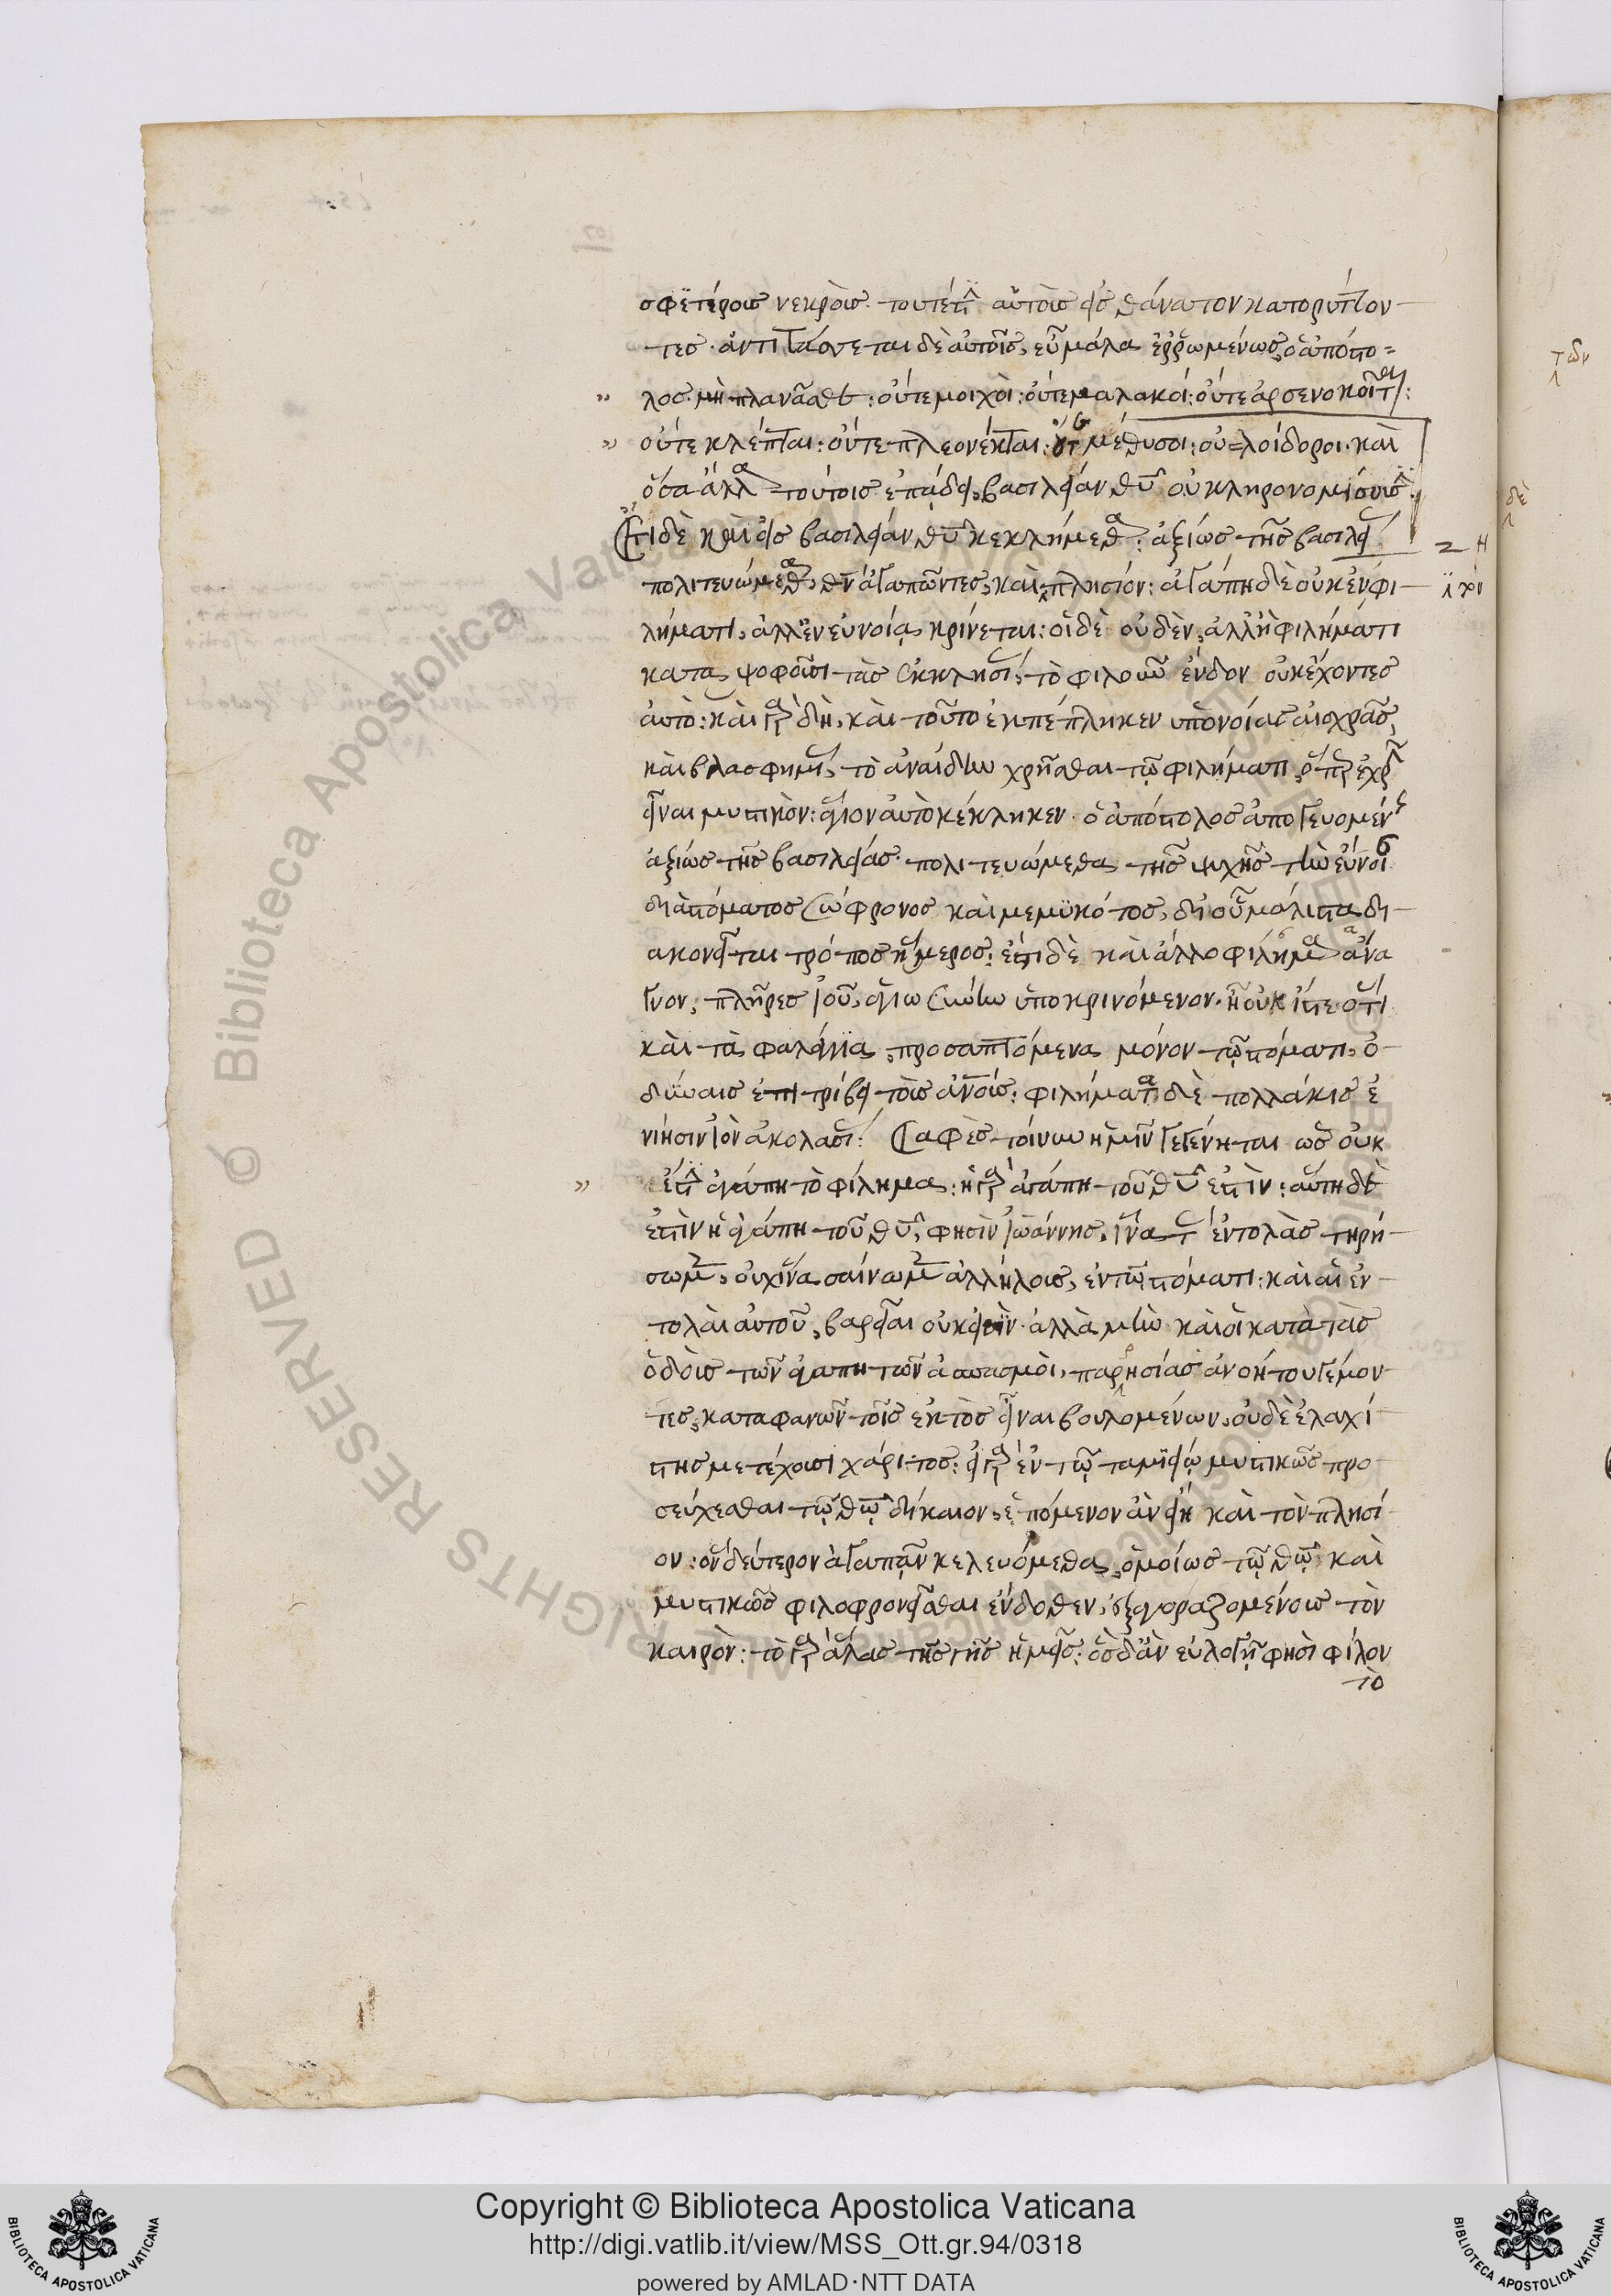 σφετέροις νεκροῖς. τουτέστιν αὑτοὺς εἰς θάνατον κατορύττον
τες. ἀντιτάσσεται δὲ αὐτοῖς, εὖ μάλα ἐρρωμένως, ὁ ἀπόστο=
λος. μὴ πλανᾶσθε: οὔτε μοιχοὶ: οὔτε μαλακοί: οὔτε ἀρσενοκοῖται:
οὔτε κλέπται: οὔτε πλεονέκται: οὔτε μέθυσοι: οὐ λοίδοροι. καὶ
ὅσα ἄλλα τούτοις ἐπάδει, βασιλείαν θυ οὐ κληρονομήσουσιν.
Ἔτι δὲ καὶ εἰς βασιλείαν θυ κεκλήμεθα: ἀξίως τῆς βασιλεί
πολιτευώμεθα, θν ἀγαπῶντες, καὶ πλησίον: ἀγάπη δὲ οὐκ ἐν φι
λήματι, ἀλλ' ἐν εὐνοίᾳ κρίνεται: οἱ δὲ οὐδὲν, ἀλλ' ἢ φιλήματι
καταψοφοῦσι τὰς ἐκκλησίας, τὸ φιλοῦν ἔνδον οὐκ ἔχοντες
αὐτὸ: καὶ γὰρ δὴ, καὶ τοῦτο ἐκπέπληκεν ὑπονοίας αἰσχρᾶς,
καὶ βλασφημίας, τὸ ἀναίδην χρῆσθαι τῷ φιλήματι, ὅπερ ἐχρῆν
εἶναι μυστικὸν: ἅγιον αὐτὸ κέκληκεν ὁ ἀπόστολος ἀπογευομέν
ἀξίως τῆς βασιλείας. πολιτευώμεθα τῆς ψυχῆς τὴν εὔνοι
διὰ στόματος σώφρονος καὶ μεμυκότος, δι' οὗ μάλιστα δι
ακονεῖται τρόπος ἥμερος: ἔστι δὲ καὶ ἄλλο φίλημα ἄνα
γνον, πλῆρες ἰοῦ, ἁγιωσύνην ὑποκρινόμενον. ἢ οὐκ ἴστε ὅτι
καὶ τὰ φαλάγγια, προσαπτόμενα μόνον τῷ στόματι, ὀ
δύναις ἐπιτρίβει τοὺς ἀνους: φιλήματα δὲ πολλάκις ἐ
νίησιν ἰὸν ἀκολασίας: Σαφὲς τοίνυν ἡμῖν γεγένηται ὡς οὐκ
ἔστιν ἀγάπη τὸ φίλημα: ἡ γὰρ ἀγάπη τοῦ θυ ἐστὶν: αὕτη δὲ
ἐστὶν ἡ ἀγάπη τοῦ θυ, φησὶν Ἰωάννης, ἵνα τὰς ἐντολὰς τηρή
σωμεν, οὐχ ἵνα σαίνωμεν ἀλλήλους, ἐν τῷ στόματι: καὶ αἱ ἐν
τολαὶ αὐτοῦ, βαρεῖαι οὐκ εἰσίν. ἀλλὰ μὴν καὶ οἱ κατὰ τὰς
ὁδοὺς τῶν ἀγαπητῶν ἀσπασμοὶ, παρρησίας ἀνοήτου γέμον
τες, καταφανῶν τοῖς ἐκτὸς εἶναι βουλομένων, οὐδὲ ἐλαχί
στης μετέχουσι χάριτος: εἰ γὰρ ἐν τῷ ταμιείῳ μυστικῶς προ
σεύχεσθαι τῷ θῷ δίκαιον, ἑπόμενον ἂν εἴη καὶ τὸν πλησί
ον: ὃν δεύτερον ἀγαπᾶν κελευόμεθα, ὁμοίως τῷ θῷ καὶ
μυστικῶς φιλοφρονεῖσθαι ἔνδοθεν, ἐξαγοραζομένους τὸν
καιρὸν: τὸ γὰρ ἅλας τῆς γῆς ἡμεῖς: ὃς δ' ἂν εὐλογῇ φησὶ φίλον
τὸ